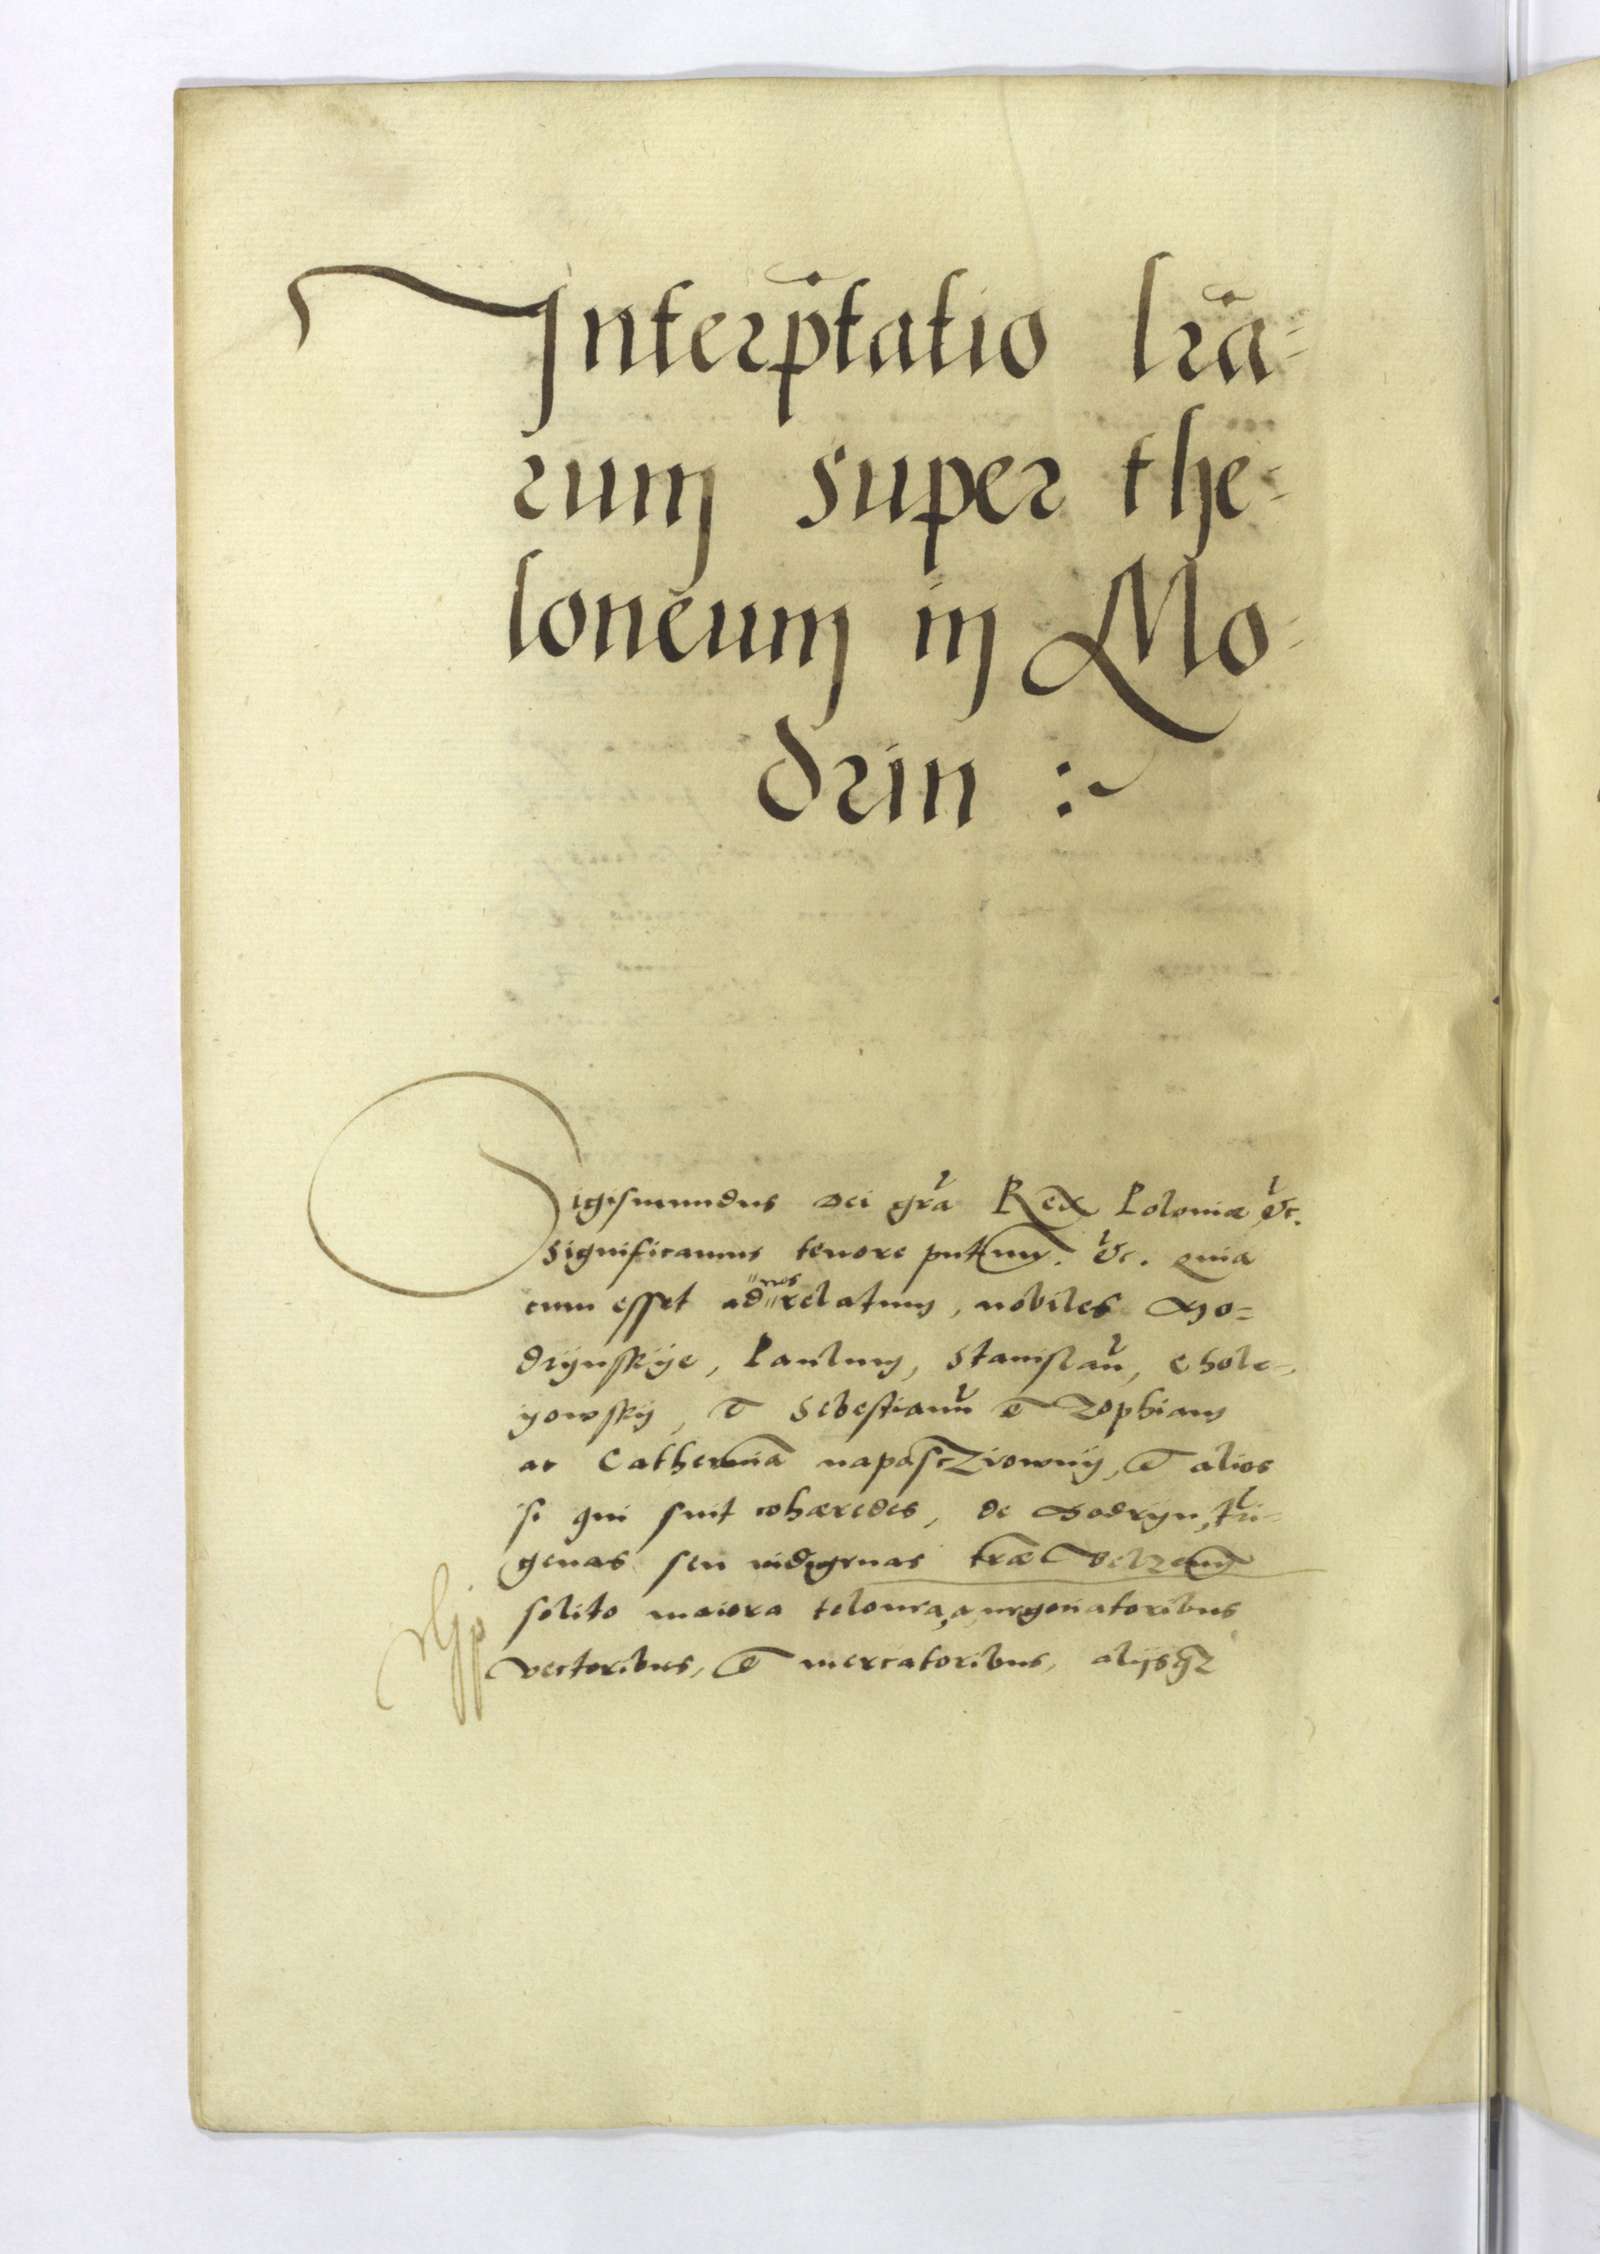 Interp̄tatio lr̄a-
rum super the-
loneum in Mo-
drin :~
Sigismundus Dei gr̄a Rex Poloniæ &c.
significamus tenore pn̄tium. &c. Quia
cum esset ad nos relatum, nobiles Mo=
drijnskije, Paulum, Stanislaū, Chole-
ijowskij, & Sebestianū & Zophiam
ac Catherinā napasczÿownij, & alios
si qui sunt cohæredes, de Modrijn,
genas seu indigenas træ Belzen̄
solito maiora telonea, a negotiatoribus
vectoribus, & mercatoribus, alijsq3